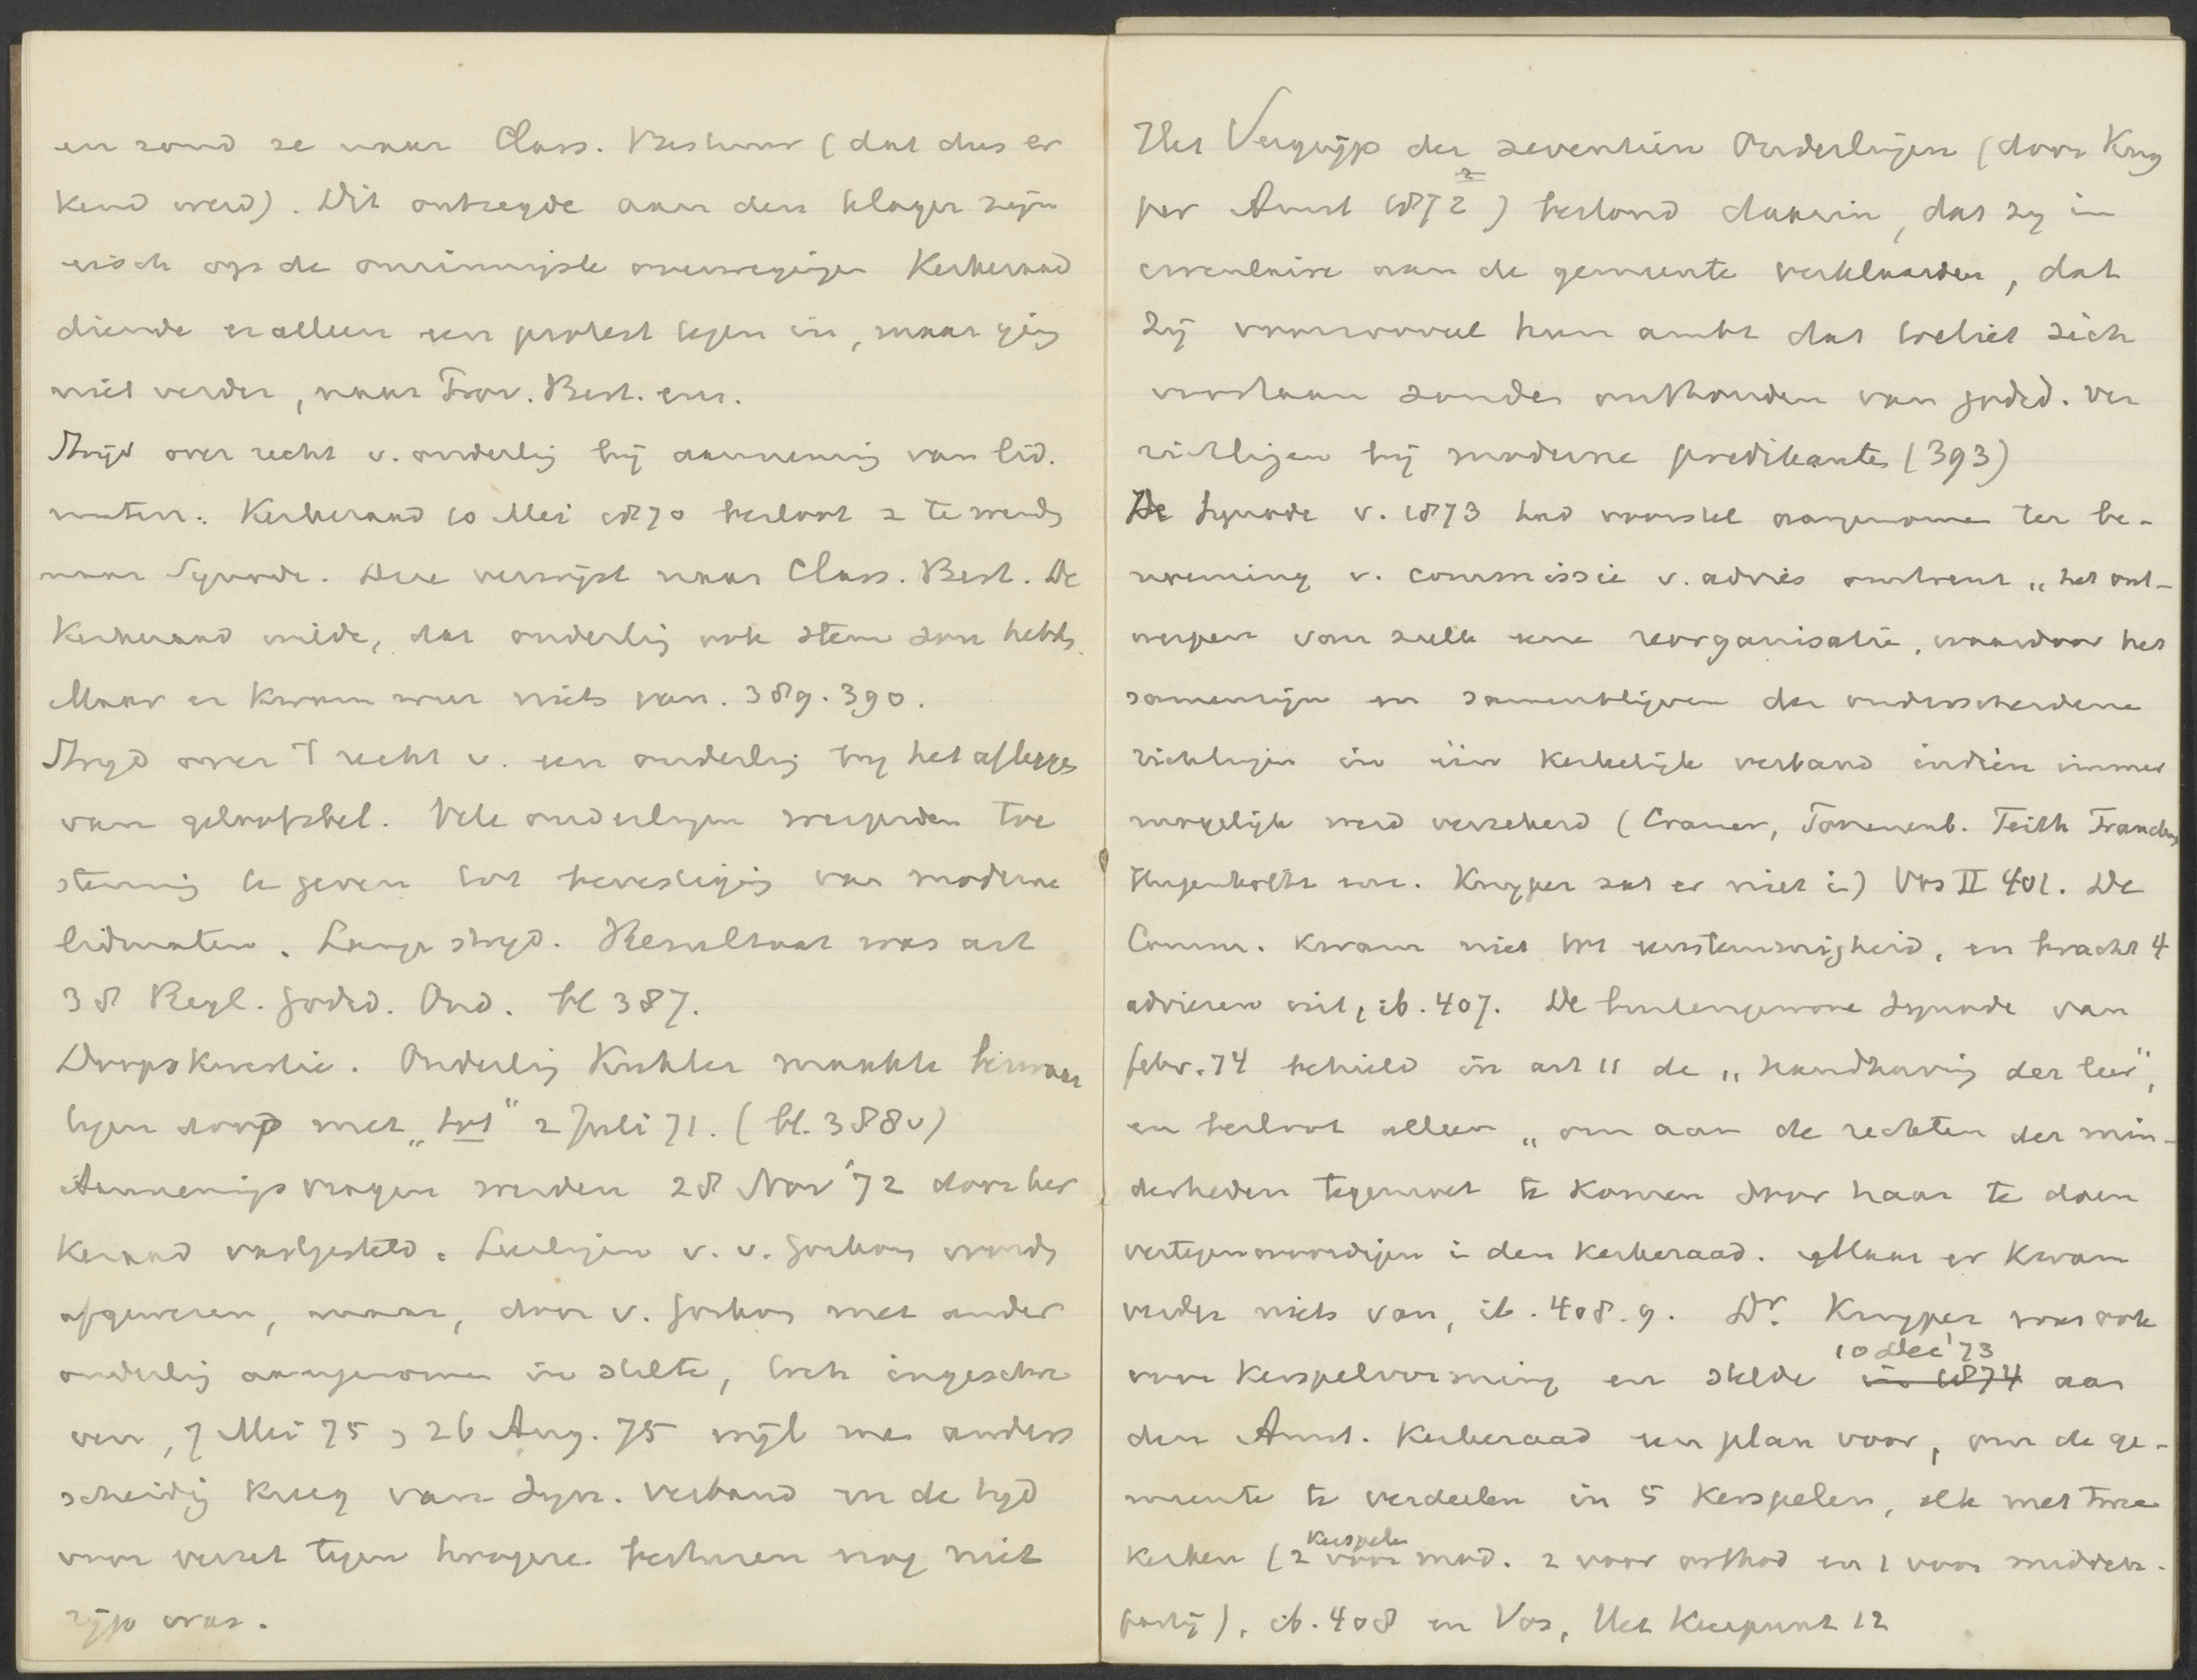 en zond ze naar Class. Bestuur (dat dus er
kend werd). Dit ontzegde aan den klager zijn
eisch op de onzinnigste overwegingen Kerkeraad
diende er alleen een protest tegen in, maar ging
niet verder, naar Prov. Best. enz.
Strijd over recht v. ouderling bij aanneming van lid.
maten. Kerkeraad 10 Mei 1870 besloot z te wenden
naar Synode. Deze verwijst naar Class. Best. De
Kerkeraad wilde, dat ouderling ook stem zou hebben.
Maar er kwam weer niets van. 389. 390.
Strijd over 't recht v. een ouderling bij het afleggen
van geloofsbel. Vele ouderlingen weigerden toe
stemming te geven tot bevestiging van moderne
lidmaten. Lange strijd. Resultaat was art
38 Regl. Godsd. Ond. bl 387.
Doopskwestie. Ouderling Kuhler maakte bezwaar
tegen doop met „tot" 2 Juli 71. (bl. 388 v)
Aannemingsvragen werden 28 Nov '72 door het
Keraad vastgesteld. Leerlingen v. v. Gorkom worden
afgewezen, maar, door v. Gorkom met ander
ouderling aangenomen in stilte, toch ingeschre
ven, 7 Mei 75, 26 Aug. 75 wijl men anders
scheiding kreeg van Syn. verband en de tijd
voor verzet tegen hoogere besturen nog niet
rijp was.
Het Vergrijp der zeventien Ouderlingen (door Kuy
per Amst 1872) bestond daarin, dat zij in
circulaire aan de gemeente verklaarden, dat
zij voorzoover hun ambt dat toeliet zich
voortaan zouden onthouden van godsd. ver
richtingen bij moderne predikanten (393)
De Synode v. 1873 had voorstel aangenomen ter be-
noeming v. commissie v. advies omtrent „het ont-
werpen van zulk eene reorganisatie, waardoor het
samenzijn en samenblijven der onderscheidene
richtingen in één kerkelijk verband indien immer
mogelijk werd verzekerd (Cramer, Tonnenb. Teith Francken
Hugenholtz enz. Kuyper zat er niet in) Vos II 401. De
Comm. kwam niet tot eenstemmigheid, en bracht 4
adviezen uit, ib. 407. De buitengewone Synode van
febr. 74 behield in art 11 de „handhaving der leer",
en besloot alleen „om aan de rechten der min-
derheden tegemoet te komen door haar te doen
vertegenwoordigen in den kerkeraad. Maar er kwam
verder niets van, ib. 408. 9. Dr. Kuyper was ook
voor kerspelvorming en stelde in 1874 10 Dec '73 aan
den Amst. kerkeraad een plan voor, om de ge-
meente te verdeelen in 5 kerspelen, elk met twee
kerken (2 kerspelen voor mod. 2 voor orthod en 1 voor midden-
partij), ib. 408 en Vos, Het Keerpunt 12